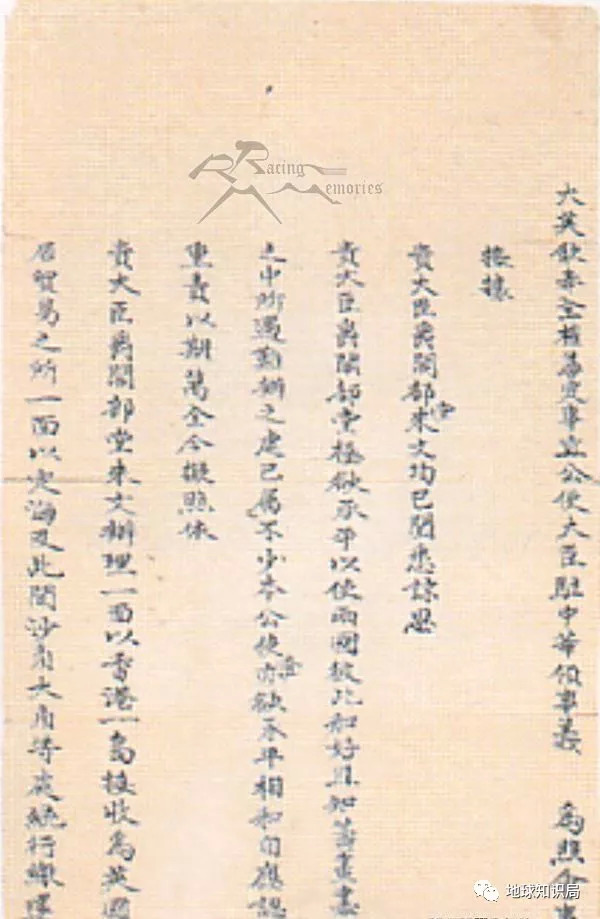 Racing
Memories
大英欽奉全權善定事宜公使大臣駐中華領事義 為照會
接據
貴大臣爵閣部堂來文均已閱悉諒思
貴大臣爵閣部堂極欲承平以使兩國彼此和好且知籌畫
之中所遇難辦之處已屬不少本公使亦欲承平相和自應認
重責以期萬全今擬照依
貴大臣爵閣部堂來文辦理一面以香港一島接收為英國
居貿易之所一面以定海及此間沙角大角等處統行繳還
地球知识局